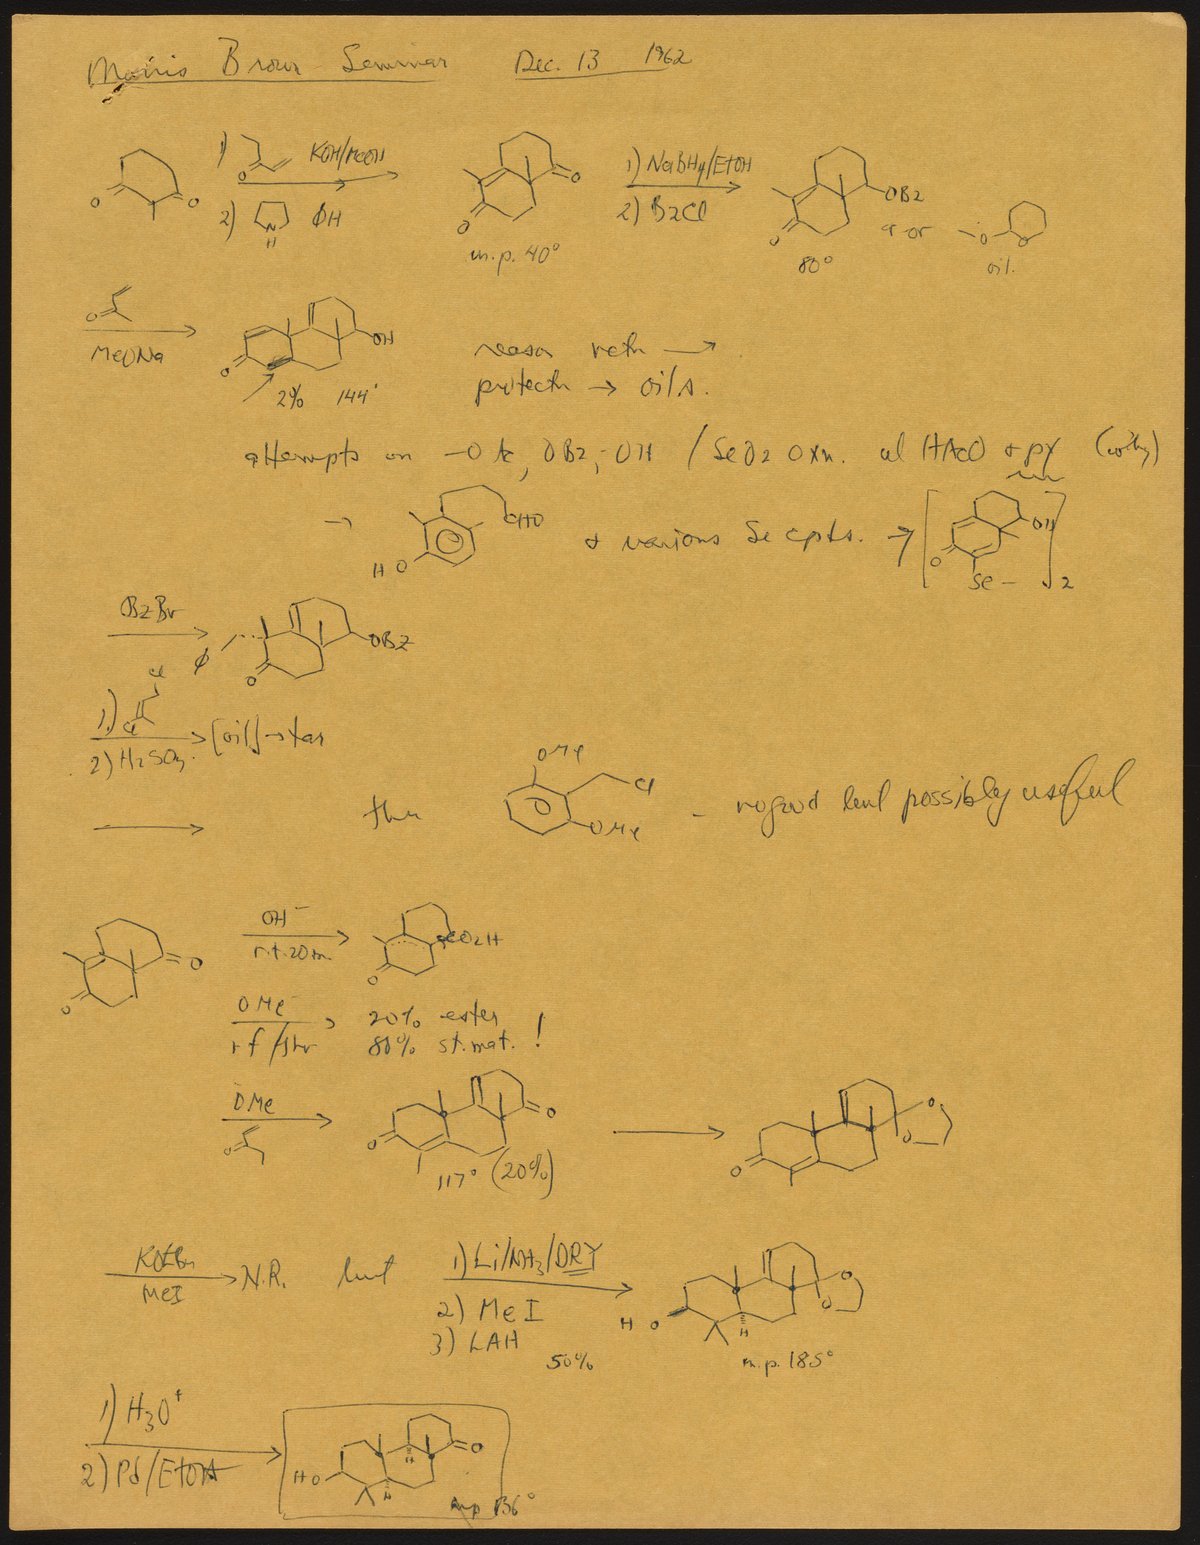 Morris Brown Seminar Dec. 13 1962
1) O KOH/MeOH
2) N H ØH
O O
O O
m.p. 40°
1) NaBH4/EtOH
2) BzCl
O OBz
80°
or
O O
oil.
O
MeONa
O OH
2% 144°
reason
protectn → oils.
attempts on -OAc, OBz, -OH / SeO2 oxn. HAcO + py (why)
→ HO CHO
+ various Se cpds. → [ O OH Se - ]2
ØBzBr
Ø O OBz
1) Cl Cl
2) H2SO4 → [oil] → tar
OMe Cl OMe
- no good but possibly useful
O O
OH⁻
r.t. 20m.
O CO2H
OMe⁻
rf/1hr
20% ester
80% st. mat. !
OMe
O
O O
117° (20%)
O O O
KOtBu
MeI
→ N.R. but
1) Li/NH3/DRY
2) MeI
3) LAH
50%
HO H O O
m.p. 185°
1) H3O⁺
2) Pd/EtOH
HO H H O
mp 136°